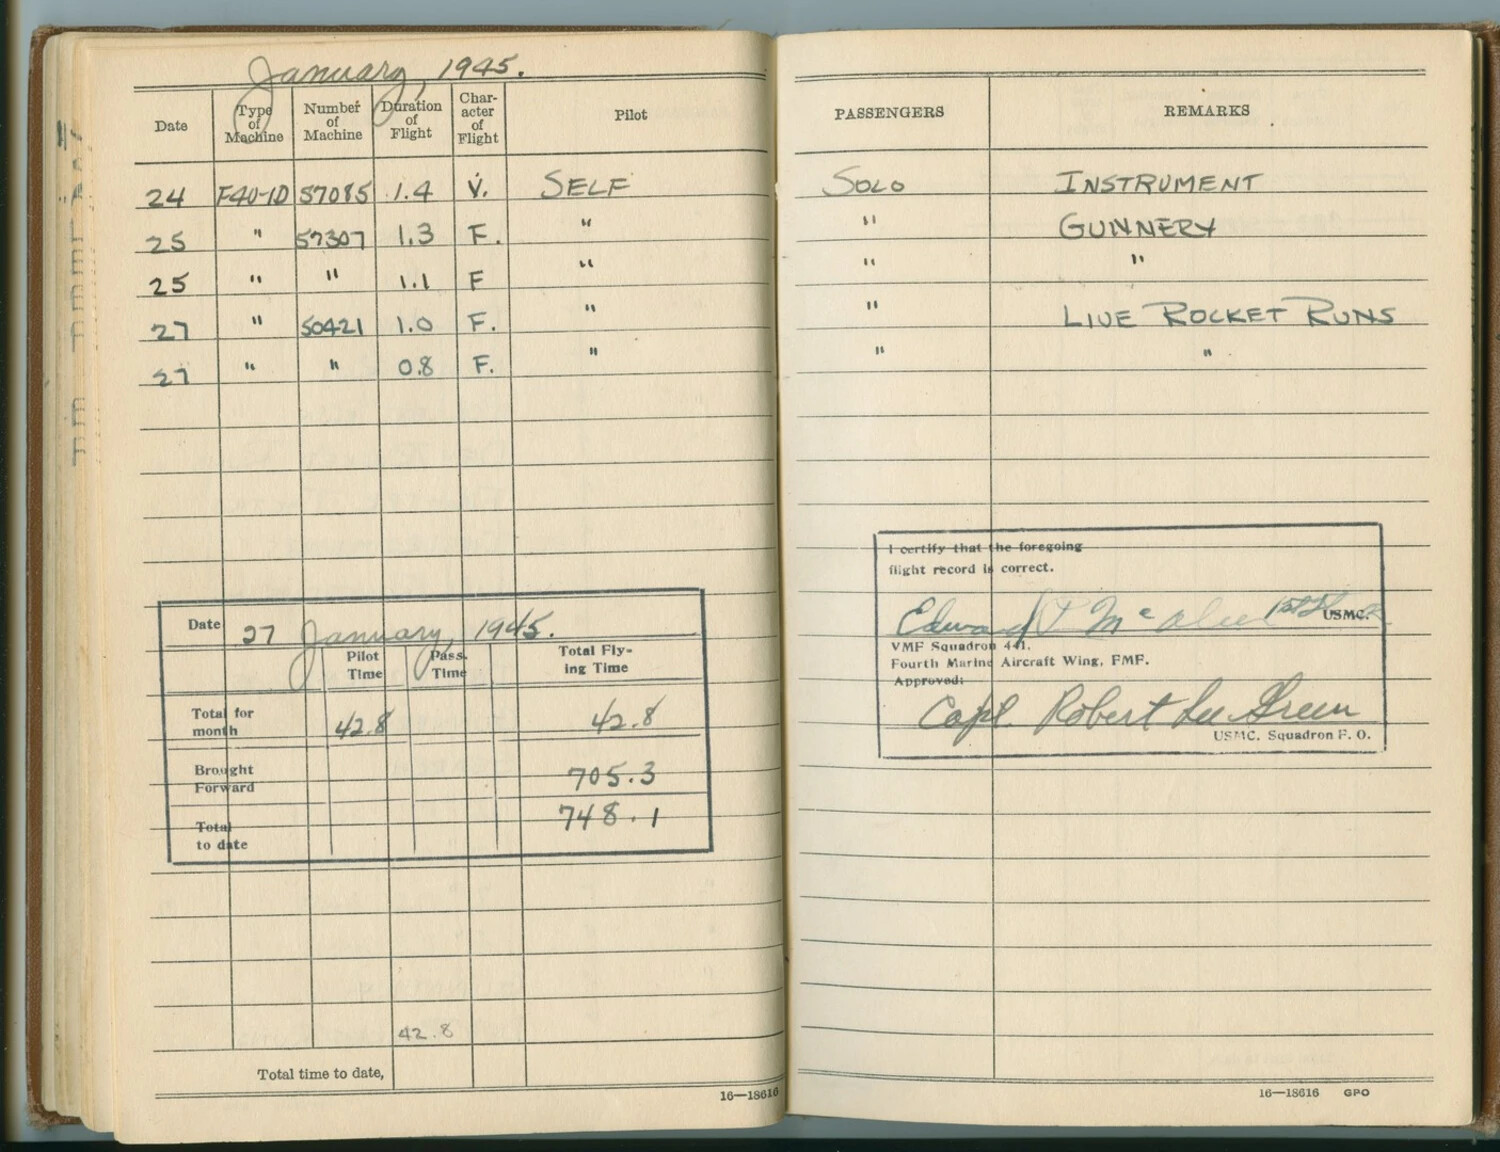 January, 1945.
Date Type of Machine Number of Machine Duration of Flight Char- acter of Flight Pilot PASSENGERS REMARKS
24 F4U-1D 57085 1.4 V. SELF SOLO INSTRUMENT
25 " 57307 1.3 F. " " GUNNERY
25 " " 1.1 F " " "
27 " 50421 1.0 F. " " LIVE ROCKET RUNS
27 " " 0.8 F. " " "
Date 27 January, 1945.
Pilot Time Pass. Time Total Fly- ing Time
Total for month 42.8 42.8
Brought Forward 705.3
Total to date 748.1
42.8
Total time to date,
16—18616
I certify that the foregoing
flight record is correct.
Edward Mc USMC.
VMF Squadron 441.
Fourth Marine Aircraft Wing, FMF.
Approved:
Capt. Robert Lee Green
USMC. Squadron F. O.
16—18616 GPO